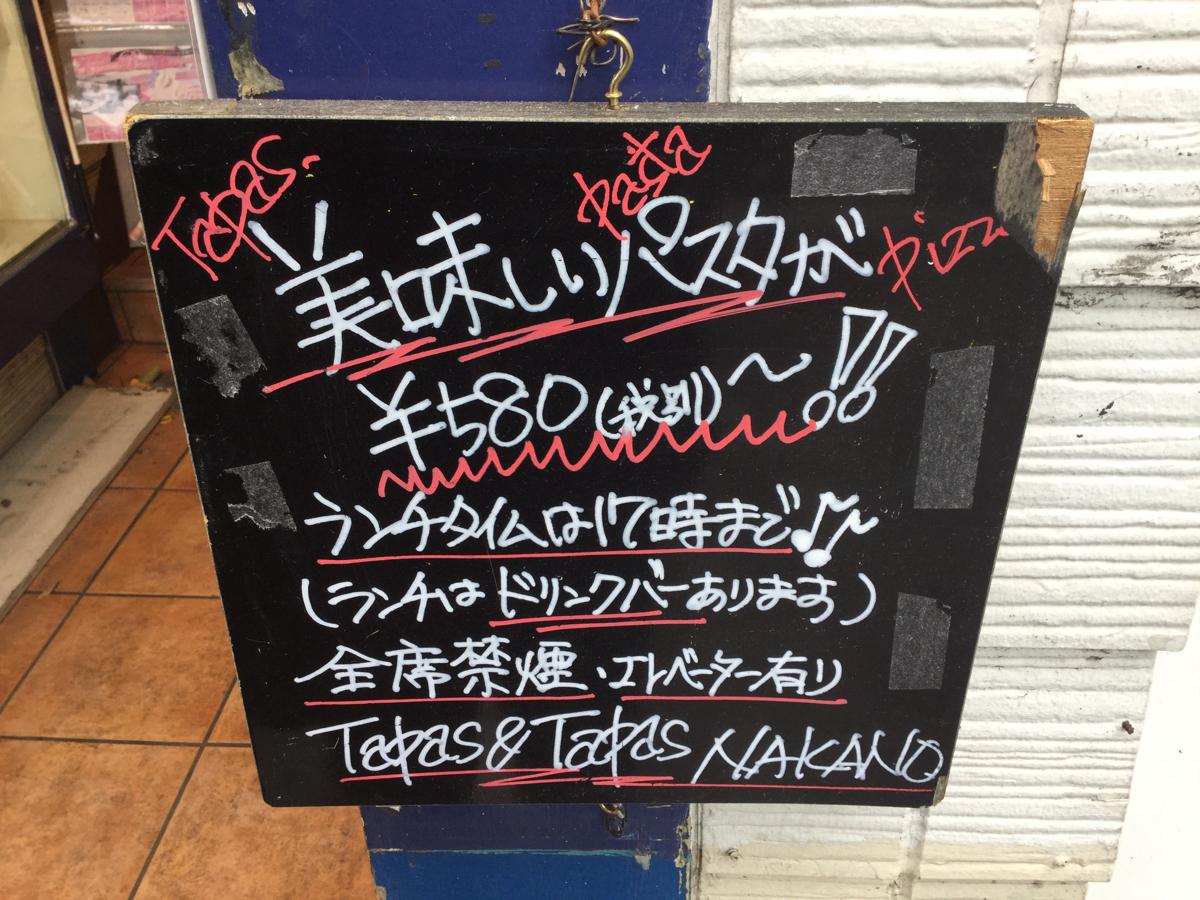 Tapas.
pasta
pizza
美味しいパスタが
¥580(税別)〜!!
ランチタイムは17時まで♪
(ランチは ドリンクバーあります)
全席禁煙・エレベーター有り
Tapas&Tapas NAKANO